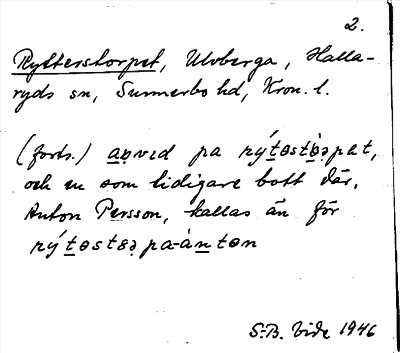 2.
Rytterstorpet, Uloberga, Halla-
ryds sn, Sunnerbo hd, Kron. l.
(forts.) a̲ṇvıd pa rý t̲ɵstɵ̀ə̣pət,
och en som tidigare bott där,
Anton Persson, kallas än för
rý t̲ɵstɵə̣ pa-àn̲tɵn
S-B. Vide 1946